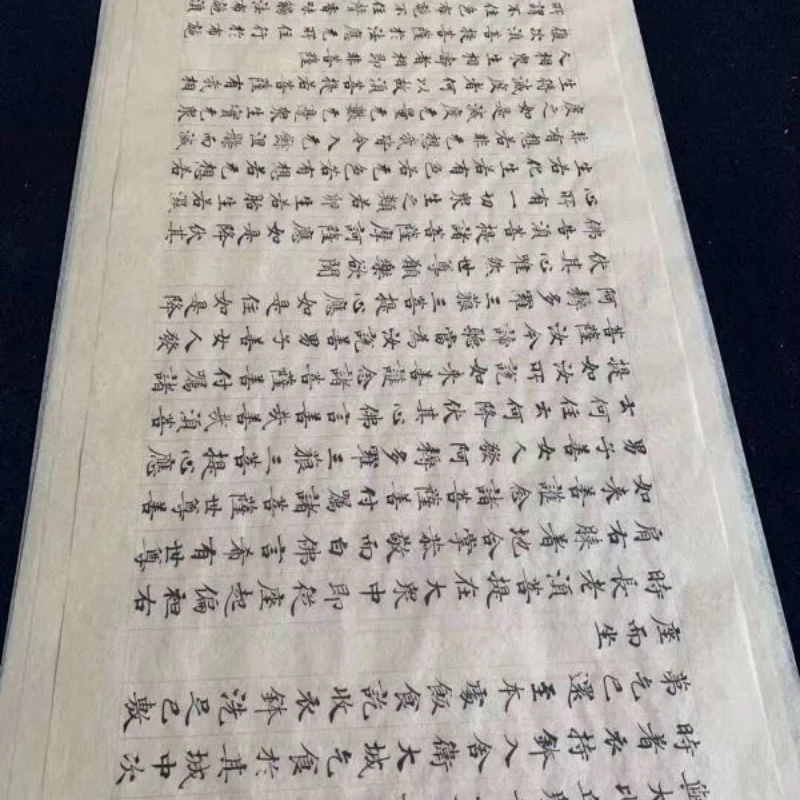 大比丘
時著衣持鉢入舍衛大城乞食於其城中次
第乞已還至本處飯食訖收衣鉢洗足已敷
座而坐
時長老須菩提在大眾中即從座起偏袒右
肩右膝著地合掌恭敬而白佛言希有世尊
如來善護念諸菩薩善付囑諸菩薩世尊善
男子善女人發阿耨多羅三藐三菩提心應
云何住云何降伏其心佛言善哉善哉須菩
提如汝所說如來善護念諸菩薩善付囑諸
菩薩汝今諦聽當為汝說善男子善女人發
阿耨多羅三藐三菩提心應如是住如是降
伏其心唯然世尊願樂欲聞
佛告須菩提諸菩薩摩訶薩應如是降伏其
心所有一切眾生之類若卵生若胎生若濕
生若化生若有色若无色若有想若无想若
非有想若非无想我皆令入无餘涅槃而滅
度之如是滅度无量无數无邊眾生實无眾
生得滅度者何以故須菩提若菩薩有我相
人相眾生相壽者相即非菩薩
復次須菩提菩薩於法應无所住行於布施
所謂不住色布施不住聲香味觸法布施須